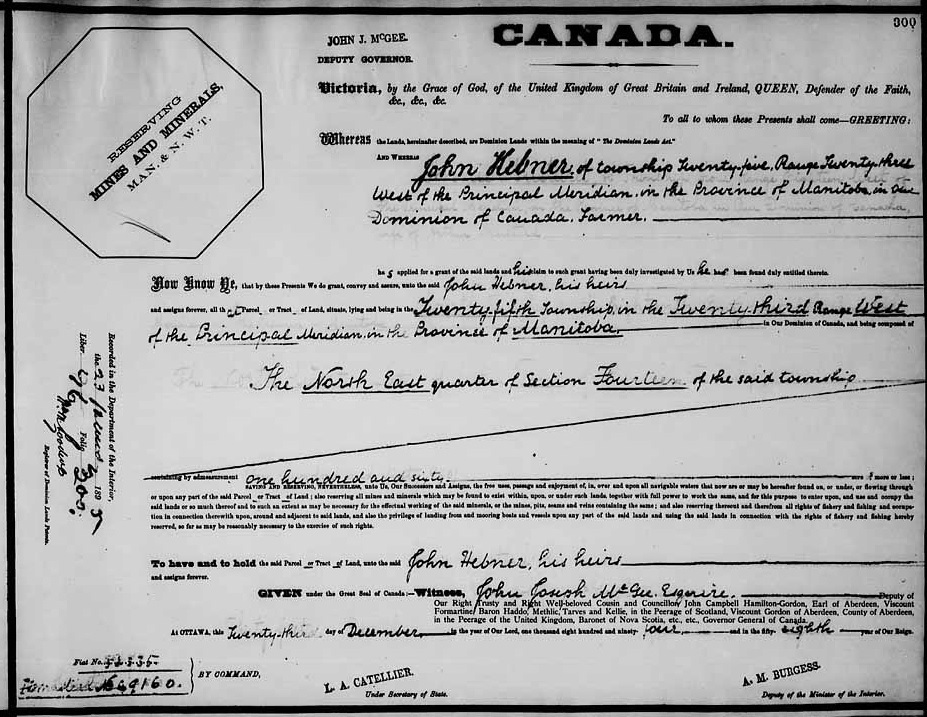 300
JOHN J. McGEE.
DEPUTY GOVERNOR.
CANADA.
RESERVING
MINES AND MINERALS,
MAN. & N. W. T.
Victoria, by the Grace of God, of the United Kingdom of Great Britain and Ireland, QUEEN, Defender of the Faith,
&c., &c., &c.
To all to whom these Presents shall come—GREETING:
Whereas the Lands, hereinafter described, are Dominion Lands within the meaning of "The Dominion Lands Act."
AND WHEREAS
John Hebner, of township Twenty-five, Range Twenty-three
West of the Principal Meridian, in the Province of Manitoba, in our
Dominion of Canada, Farmer.
has applied for a grant of the said lands and his claim to such grant having been duly investigated by Us he has been found duly entitled thereto.
Now Know Ye, that by these Presents We do grant, convey and assure, unto the said John Hebner, his heirs
and assigns forever, all that Parcel or Tract of Land, situate, lying and being in the Twenty-fifth Township, in the Twenty-third Range West
of the Principal Meridian, in the Province of Manitoba. in Our Dominion of Canada, and being composed of
The North East quarter of Section Fourteen of the said township
containing by admeasurement one hundred and sixty acres more or less;
SAVING AND RESERVING, NEVERTHELESS, unto Us, Our Successors and Assigns, the free uses, passage and enjoyment of, in, over and upon all navigable waters that now are or may be hereafter found on, or under, or flowing through
or upon any part of the said Parcel or Tract of Land; also reserving all mines and minerals which may be found to exist within, upon, or under such lands, together with full power to work the same, and for this purpose to enter upon, and use and occupy the
said lands or so much thereof and to such an extent as may be necessary for the effectual working of the said minerals, or the mines, pits, seams and veins containing the same; and also reserving thereout and therefrom all rights of fishery and fishing and occupa-
tion in connection therewith upon, around and adjacent to said lands, and also the privilege of landing from and mooring boats and vessels upon any part of the said lands and using the said lands in connection with the rights of fishery and fishing hereby
reserved, so far as may be reasonably necessary to the exercise of such rights.
To have and to hold the said Parcel or Tract of Land, unto the said John Hebner, his heirs
and assigns forever.
GIVEN under the Great Seal of Canada:—Witness, John Joseph McGee, Esquire. Deputy of
Our Right Trusty and Right Well-beloved Cousin and Councillor John Campbell Hamilton-Gordon, Earl of Aberdeen, Viscount
Formartine, Baron Haddo, Methlic, Tarves and Kellie, in the Peerage of Scotland, Viscount Gordon of Aberdeen, County of Aberdeen,
in the Peerage of the United Kingdom, Baronet of Nova Scotia, etc., etc., Governor General of Canada.
At OTTAWA, this Twenty-third day of December in the year of Our Lord, one thousand eight hundred and ninety-four and in the fifty-eighth year of Our Reign.
Fiat No. 52335.
Homestead 49160.
BY COMMAND,
L. A. CATELLIER.
Under Secretary of State.
A. M. BURGESS.
Deputy of the Minister of the Interior.
Recorded in the Department of the Interior,
the 23 1895
Liber 96 Folio 300.
Register of Dominion Lands Patents.